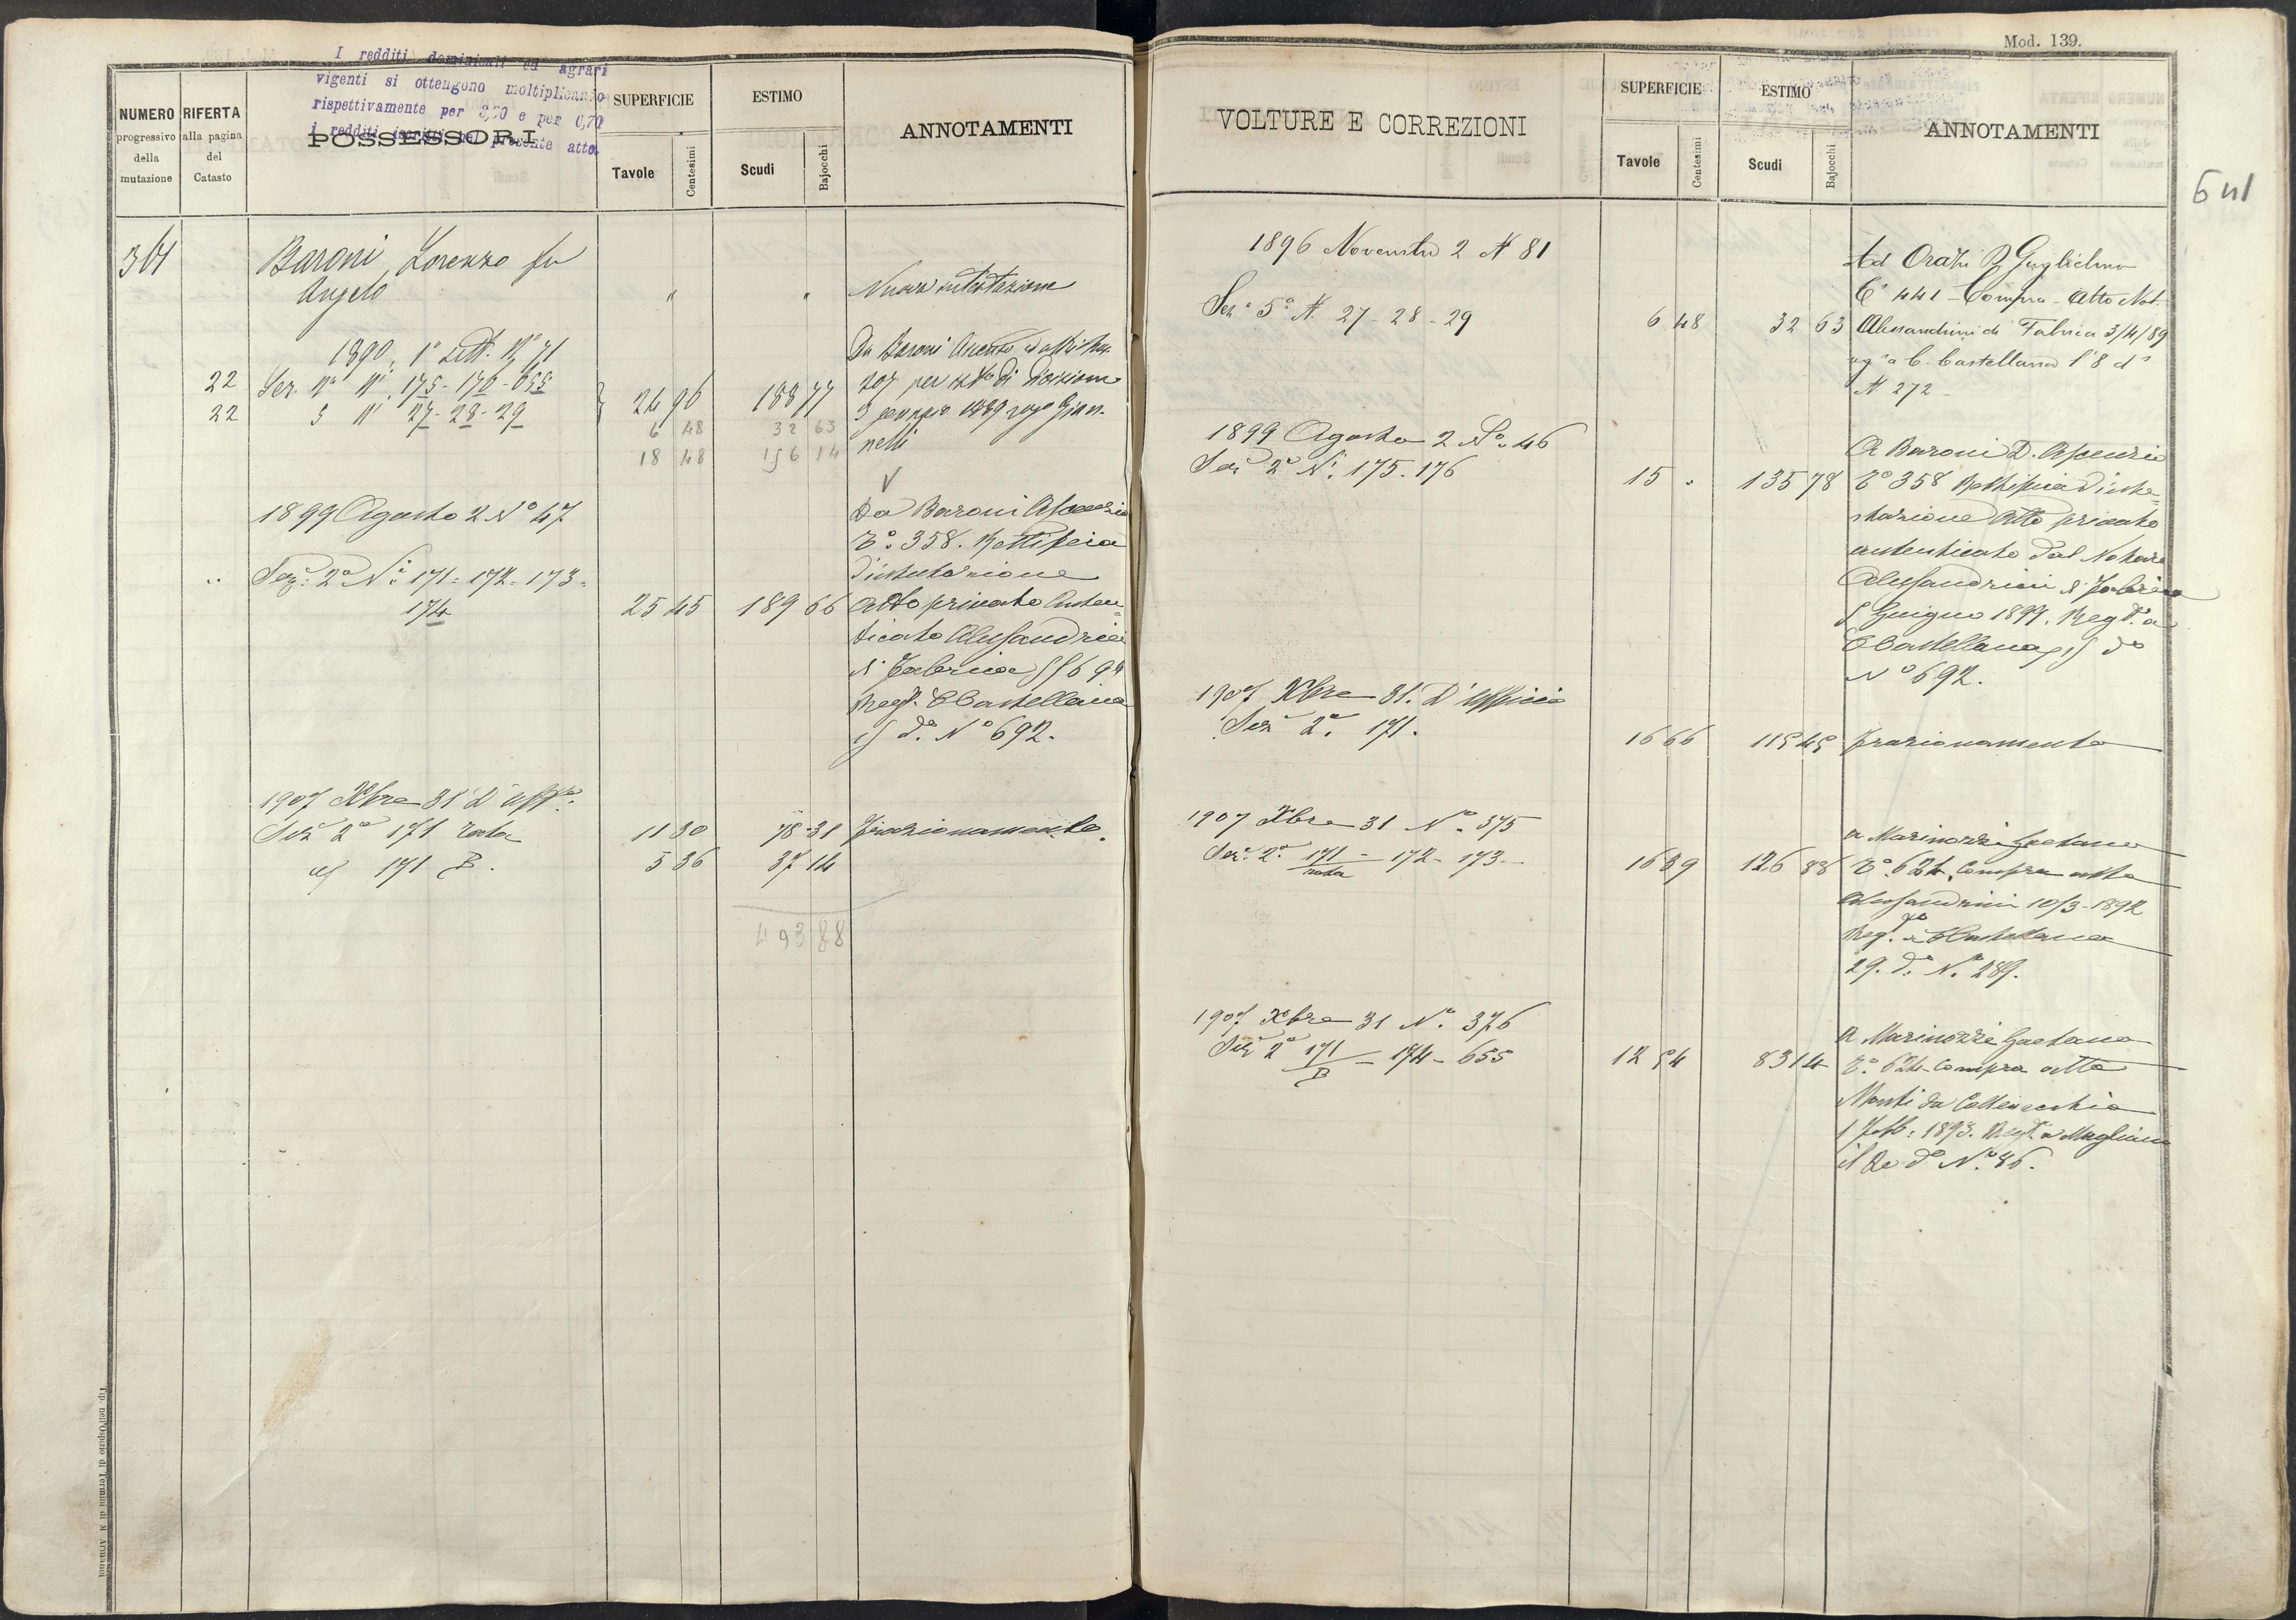 I redditi dominicali ed agrari
vigenti si ottengono moltiplicando
rispettivamente per 3,20 e per 0,70
i redditi iscritti nel presente atto.
NUMERO
progressivo
della
mutazione
RIFERTA
alla pagina
del
Catasto
POSSESSORI
SUPERFICIE
Tavole
Centesimi
ESTIMO
Scudi
Bajocchi
ANNOTAMENTI
361
Baroni Lorenzo fu
Angelo
" "
Nuova intestazione
1890, 1° Sett. N° 71
22 Sez. IIa Ni 175-176-655
22 5 Ni 27-28-29
24 96 188 77
6 48 32 63
18 48 156 14
Da Baroni
per di divisione
3 gennaio 1889 rogo Gian-
nelli
V
1899 Agosto 2 N° 47
" Sez. 2a Ni 171-172-173-
174 25 45 189 66
Da Baroni Ascenzio
C° 358. Rettifica
d'intestazione
Atto privato Auten-
ticato Alessandrini
di Fabrica
Reg. CCastellana
15 d° N° 692.
1907 Xbre 31 D'Uff°.
Sez 2a 171 rata 11 30 78-31 frazionamento.
171 B. 5 36 37 14
493 88
Tip. nell'Ospizio di Termini di N. Armanni
Mod. 139.
641
VOLTURE E CORREZIONI
SUPERFICIE
Tavole
Centesimi
ESTIMO
Scudi
Bajocchi
ANNOTAMENTI
1896 Novembre 2 N 81
Sez. 5a N. 27-28-29 6 48 32 63
Ad Guglielmo
C° 441 - Compra - Atto Not.
Alessandrini di Fabrica 3/4/89
a C. Castellana l'8 d°
N 272
1899 Agosto 2 N° 46
Sez 2a Ni. 175-176 15 " 135 78
A Baroni D. Ascenzio
C° 358 Rettifica d'inte-
stazione Atto privato
autenticato dal Notaro
Alessandrini di Fabrica
5 Giugno 1899. Regto. a
CCastellana 15 d°
N° 692.
1907 Xbre 31. D'Ufficio
Sez 2a. 171. 16 66 115 45 frazionamento
1907 Xbre 31 N°. 375
Sez. 2a. 171 rata - 172-173- 16 59 126 88
a Marinozzi Gaetano
C°. 624. Compra atto
Alessandrini 10/3-1892
Reg. a CCastellana
29. d° N° 289.
1907 Xbre 31 N°. 376
Sez 2a 171 B - 174-655 12 54 83 14
a Marinozzi Gaetano
C°. 624 Compra atto
Monti da Collevecchio
1893. Regto. a Magliano
il d° N° 86.